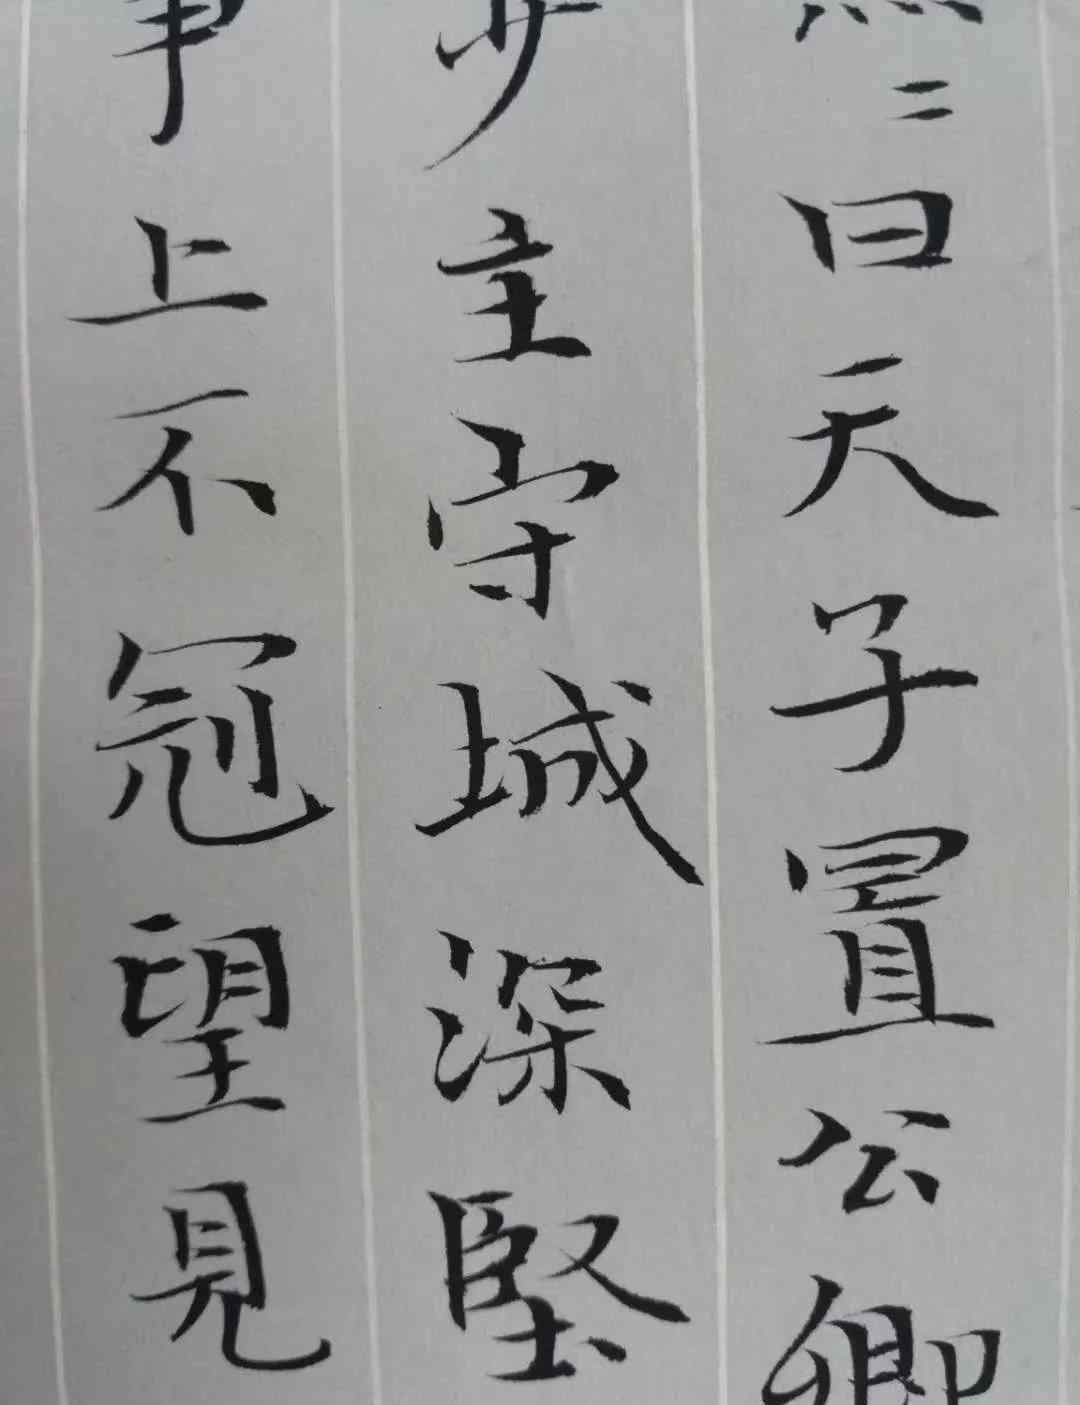 〻曰天子置公卿
少主守城深堅
事上不冠望見